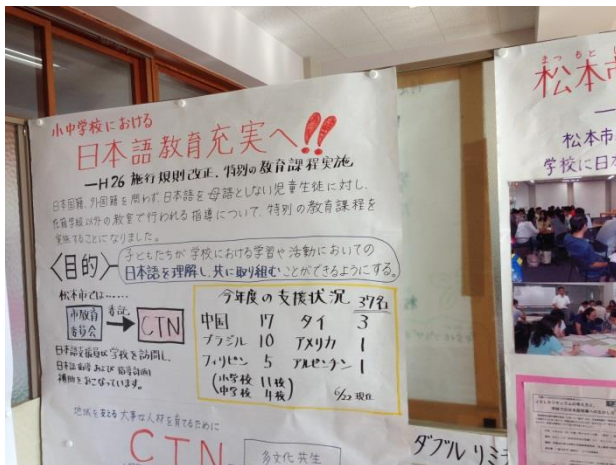 小中学校における
日本語教育充実へ!!
—H26 施行規則改正、特別の教育課程実施
日本国籍、外国籍を問わず、日本語を母語としない児童生徒に対し、
在籍学級以外の教室で行われる指導について、特別の教育課程を
実施することになりました。
〈目的〉
子どもたちが学校における学習や活動においての
日本語を理解し、共に取り組むことができるようにする。
松本市では……
市教育
委員会
委託
CTN
日本語支援員が学校を訪問し、
日本語指導および
補助をおこなっています。
今年度の支援状況 37名
中国 17 タイ 3
ブラジル 10 アメリカ 1
フィリピン 5 アルゼンチン 1
(小学校 11校
中学校 4校)
6/22 現在
地域を支える大事な人材を育てるために
CTN
多文化共生
まつもと
松本市
松本市
学校に日本
ダブルリミ